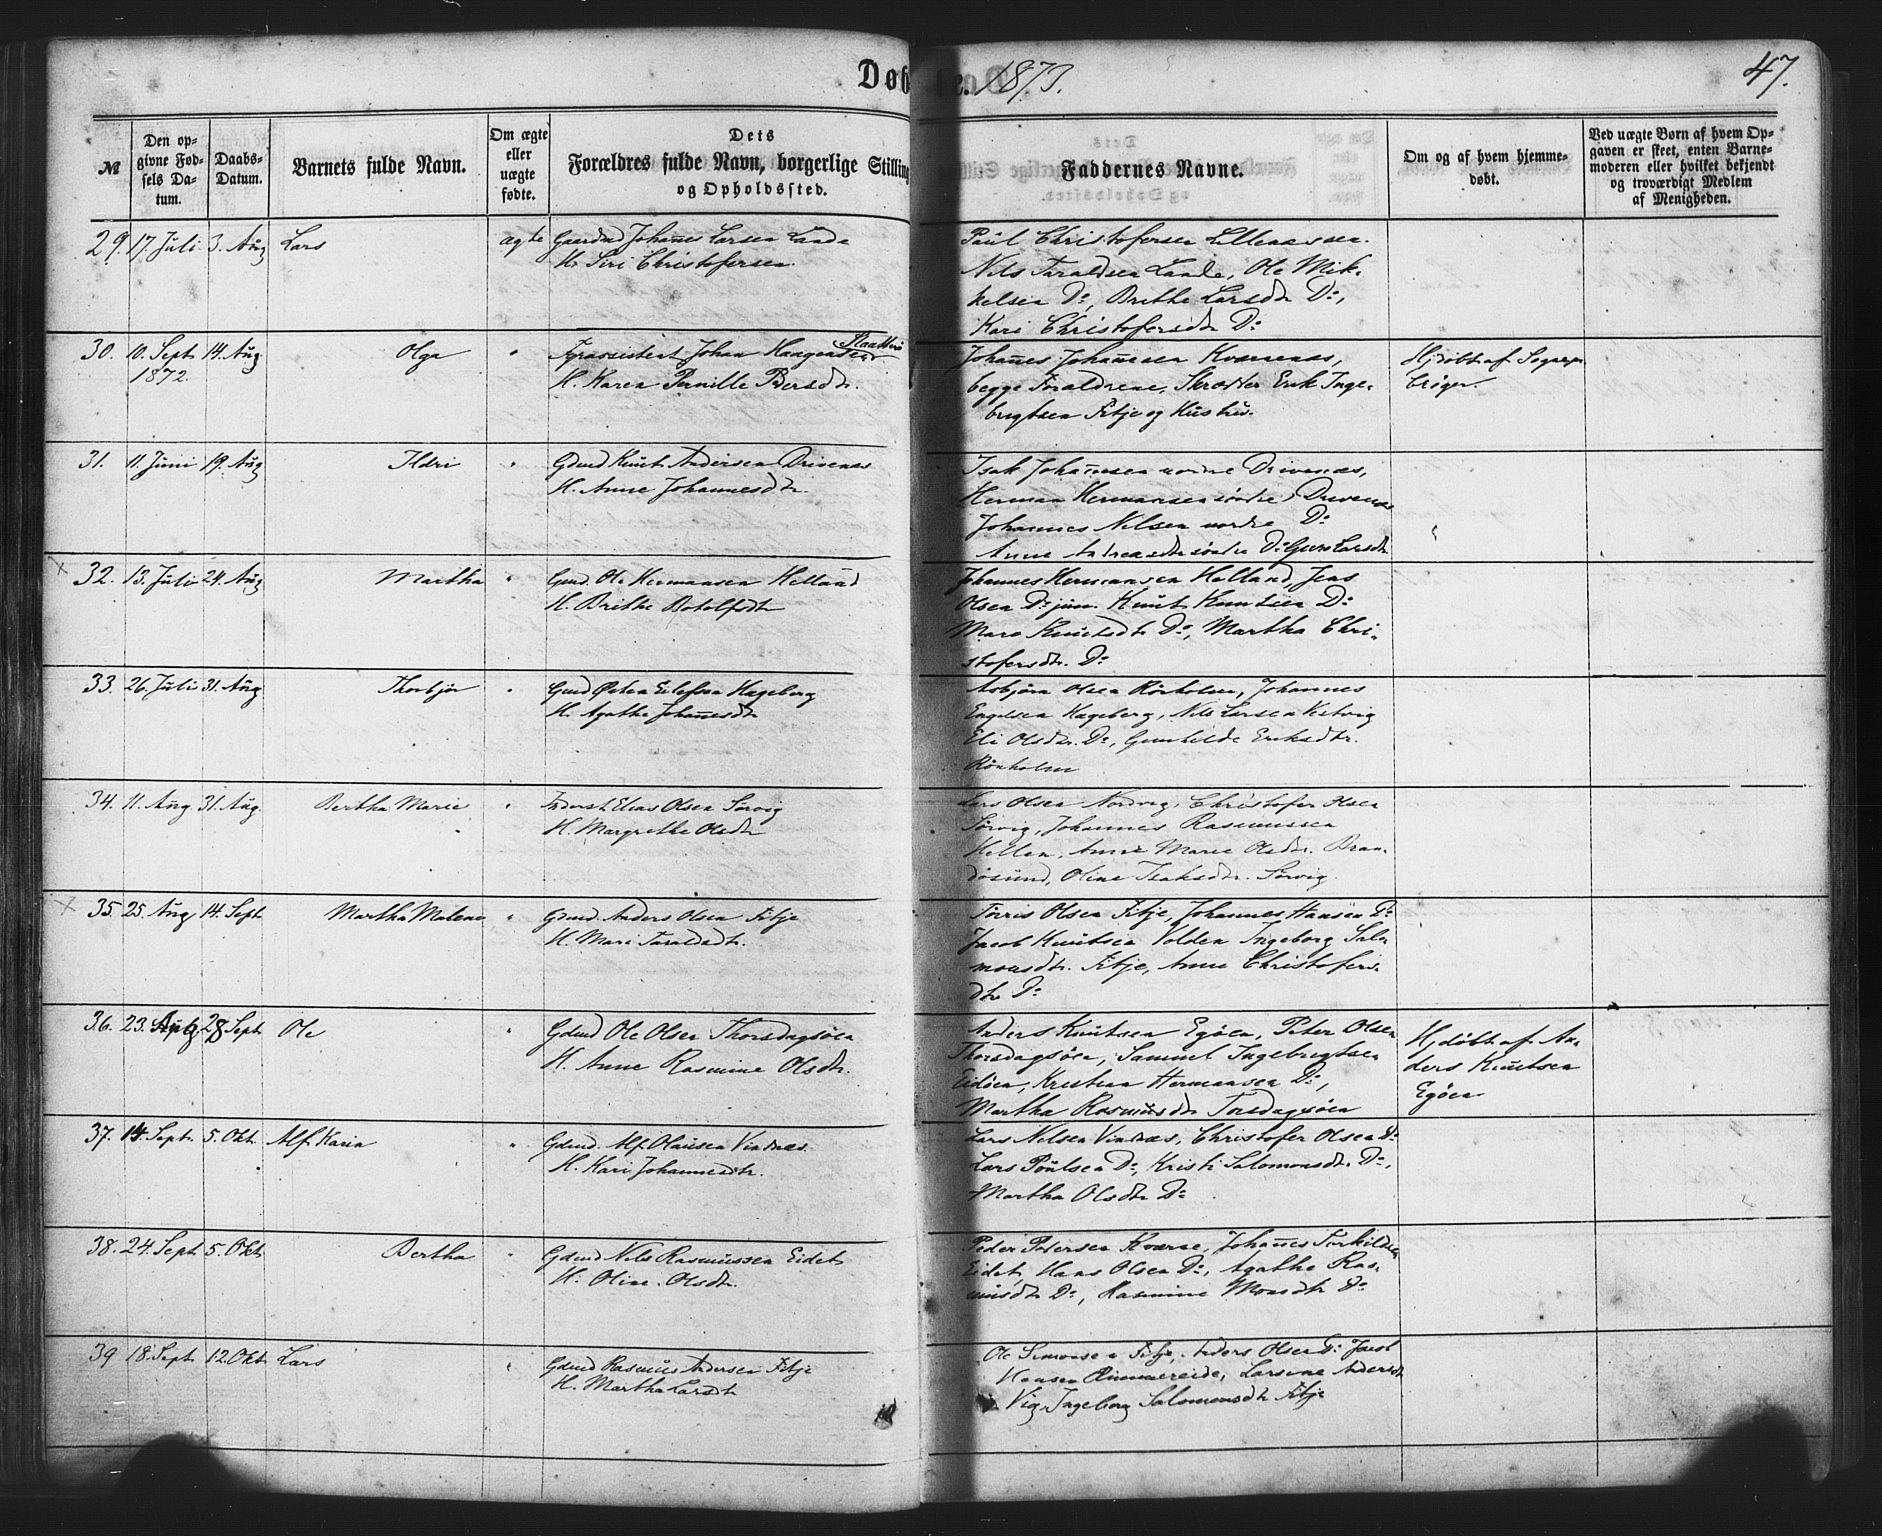 Døbte. 1873. 47.
№
Den opgivne Fødsels Datum.
Daabs-Datum.
Barnets fulde Navn.
Om ægte eller uægte fødte.
Dets Forældres fulde Navn, borgerlige Stilling og Opholdssted.
Faddernes Navne.
Om og af hvem hjemmedøbt.
Ved uægte Børn af hvem Opgaven er skeet, enten Barnemoderen eller hvilket bekjendt og troværdigt Medlem af Menigheden.
29. 17. Juli 3. Aug Lars ægte Gaardmd Johannes Larsen Lande
H. Siri Christofersen.
Paul Christofersen
Nils Taraldsen Lande, Ole Mik-
kelsen Do, Brithe Larsdtr Do,
Kari Christofersdtr Do
30. 10. Sept 14. Aug Olga " Johan Haagensen
1872.
H. Karen Pernille Bersdtr.
Johannes Johannesen Kværnenæs,
begge Forældrene, Skrædder Erik Inge-
brigtsen Fitje og Hustru.
Hjdøbt af Sogneprp
31. 11. Juni 19. Aug Ildri " Gdmd Knut Andersen Drivenæs
H. Anne Johannesdtr.
Isak Johannesen nordre Drivenæs,
Herman Hermansen søndre Drivenæs
Johannes Nilsen nordre Do
Anne Andreasdtr søndre Do Guro Larsdtr
32. 13. Juli 24. Aug Martha " Gmd. Ole Hermansen Helland
H. Brithe Botolfsdtr
Johannes Hermansen Helland, Jens
Olsen Do jun. Knut Knutsen Do
Knutsdtr Do, Martha Chri-
stofersdtr. Do
33. 26. Juli 31. Aug Thorbjør " Gmd Østen Eilefsen Hageberg
H. Agathe Johannesdtr
Asbjørn Olsen Rönholm, Johannes
Engelsen Hageberg, Nils Larsen Vestvig
Eli Olsdtr. Do, Gunhilde Eriksdtr.
Rönholm
34. 11. Aug 31. Aug. Bertha Marie " Inderst Elias Olsen Sørvig
H. Margrethe Olsdtr
Lars Olsen Nordvig, Christofer Olsen
Sørvig, Johannes Rasmussen
Hellen, Anne Marie Olsdtr. Bran-
dösund, Oline Isaksdtr. Sørvig.
35. 25. Aug 14. Sept Martha Malene " Gmd. Anders Olsen Fitje
H. Mari Taraldsdtr.
Torris Olsen Fitje, Johannes Hansen Do
Jacob Knutsen Volden Ingeborg Salo-
monsdtr. Fitje, Anne Christofers-
dtr Do
36. 23. Aug 28 Sept Ole " Gdmd Ole Olsen Thorsdagsøen
H. Anne Rasmine Olsdtr.
Anders Knutsen Egøen, Peter Olsen
Thorsdagsøen, Samuel Ingebrigtsen
Eidøen, Kristine Hermansen Do,
Martha Rasmusdtr Torsdagsøen
Hjdøbt af An-
ders Knutsen
Egöen
37. 14. Sept. 5. Okt. Alf. Karin " Gdmd. Alf. Olausen Vindnæs
H. Kari Johannesdtr.
Lars Nilsen Vindnæs, Christofer Olsen Do
Lars Poulsen Do, Kristi Salomonsdtr. Do,
Martha Olsdtr Do
38. 24. Sept 5. Okt Bertha " Gdmd Nils Rasmussen Eidet
H. Oline. Olsdtr.
Peder Pedersen Kværne, Johannes Torkildsen
Eidet, Hans Olsen Do, Agathe Ras-
musdtr Do, Rasmine Monsdtr Do
39 18. Sept 12. Okt Lars " Gdmd Rasmus Andersen Fitje
H. Martha Larsdtr
Ole Simonsen Fitje, Anders Olsen Do Jacob
Hansen Rimmereide, Larsine Andersdtr
Vig, Ingeborg Salomonsdtr Fitje